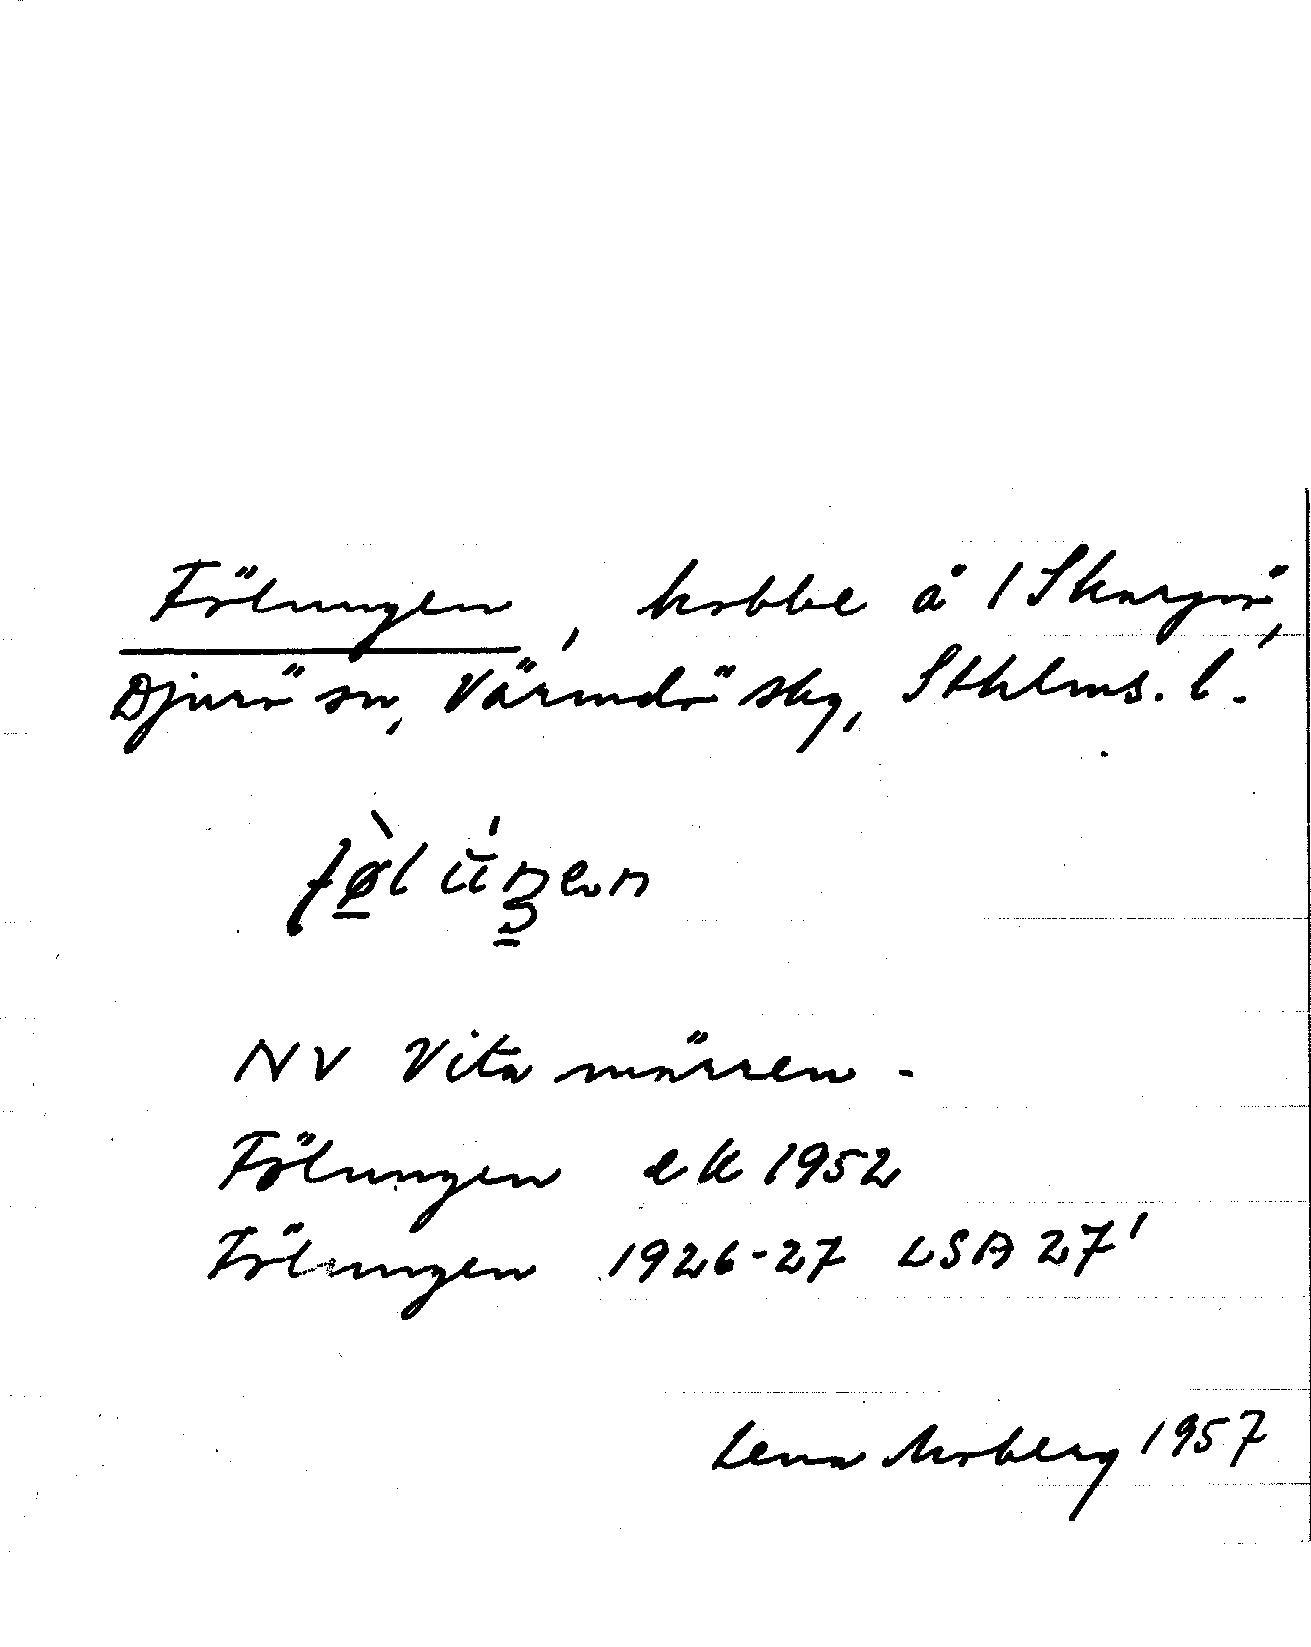 Fölungen, kobbe å 1 Skargö,
Djurö sn, Värmdö skg, Sthlms. l.
NV Vita märren -
Fölungen ek 1952
Fölungen 1926-27 LSA 27'
Lena Moberg 1957